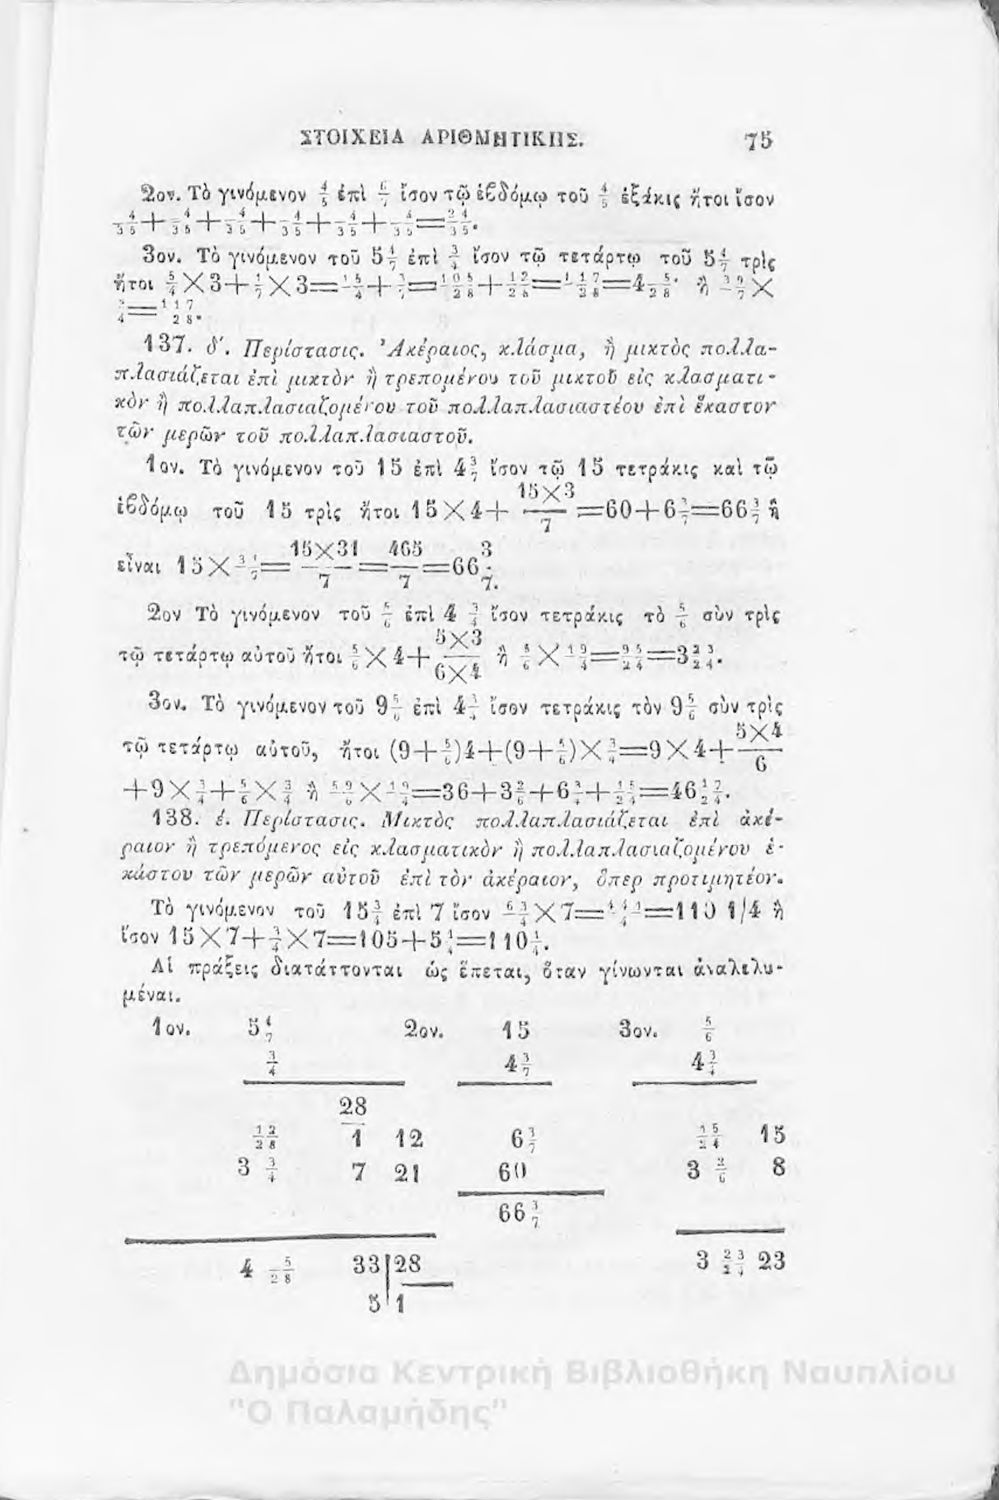 ΣΤΟΙΧΕΙΑ ΑΡΙΘΜΗΤΙΚΗΣ. 75
2ον. Τὸ γινόμενον 4/5 ἐπὶ 6/7 ἴσον τῷ ἑβδόμῳ τοῦ 4/5 ἑξάκις ἤτοι ἴσον
4/35+4/35+4/35+4/35+4/35+4/35=24/35.
3ον. Τὸ γινόμενον τοῦ 5 4/7 ἐπὶ 3/4 ἴσον τῷ τετάρτῳ τοῦ 5 4/7 τρὶς
ἤτοι 5/4×3+1/7×3=15/4+3/7=105/28+12/28=117/28=4 5/28· ἢ 39/7×
3/4=117/28.
137. δ'. Περίστασις. Ἀκέραιος, κλάσμα, ἢ μικτὸς πολλα-
πλασιάζεται ἐπὶ μικτὸν ἢ τρεπομένου τοῦ μικτοῦ εἰς κλασματι-
κὸν ἢ πολλαπλασιαζομένου τοῦ πολλαπλασιαστέου ἐπὶ ἕκαστον
τῶν μερῶν τοῦ πολλαπλασιαστοῦ.
1ον. Τὸ γινόμενον τοῦ 15 ἐπὶ 4 3/7 ἴσον τῷ 15 τετράκις καὶ τῷ
ἑβδόμῳ τοῦ 15 τρὶς ἤτοι 15×4+ 15×3/7 =60+6 3/7=66 3/7 ἢ
εἶναι 15×31/7= 15×31/7 = 465/7 =66 3/7.
2ον Τὸ γινόμενον τοῦ 5/6 ἐπὶ 4 3/4 ἴσον τετράκις τὸ 5/6 σὺν τρὶς
τῷ τετάρτῳ αὐτοῦ ἤτοι 5/6×4+ 5×3/6×4 ἢ 5/6×19/4=95/24=3 23/24.
3ον. Τὸ γινόμενον τοῦ 9 5/6 ἐπὶ 4 3/4 ἴσον τετράκις τὸν 9 5/6 σὺν τρὶς
τῷ τετάρτῳ αὐτοῦ, ἤτοι (9+5/6)4+(9+5/6)×3/4=9×4+ 5×4/6
+9×3/4+5/6×3/4 ἢ 59/6×19/4=36+3 2/6+6 3/4+15/24=46 17/24.
138. έ. Περίστασις. Μικτὸς πολλαπλασιάζεται ἐπὶ ἀκέ-
ραιον ἢ τρεπόμενος εἰς κλασματικὸν ἢ πολλαπλασιαζομένου ἑ-
κάστου τῶν μερῶν αὐτοῦ ἐπὶ τὸν ἀκέραιον, ὅπερ προτιμητέον.
Τὸ γινόμενον τοῦ 15 3/4 ἐπὶ 7 ἴσον 63/4×7=441/4=110 1/4 ἢ
ἴσον 15×7+3/4×7=105+5 1/4=110 1/4.
Αἱ πράξεις διατάττονται ὡς ἕπεται, ὅταν γίνωνται ἀναλελυ-
μέναι.
1ον. 5 4/7 2ον. 15 3ον. 5/6
3/4 4 3/7 4 3/4
28
12/28 1 12 6 3/7 15/24 15
3 3/4 7 21 60 3 2/6 8
66 3/7
4 5/28 33 28 3 23/24 23
5 1
Δημόσια Κεντρική Βιβλιοθήκη Ναυπλίου
"Ο Παλαμήδης"